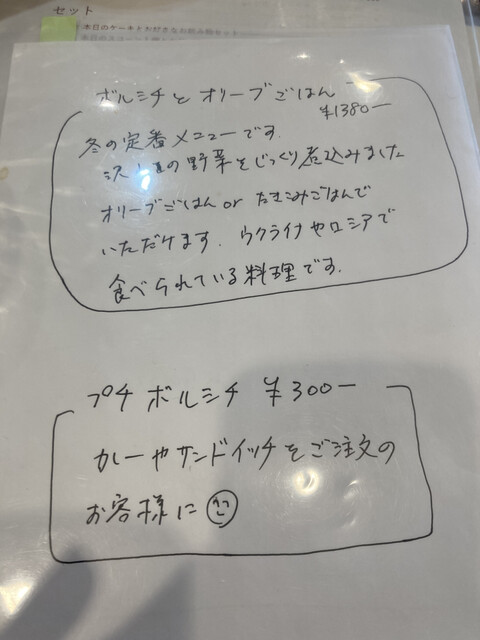 セット
本日のケーキとお好きなお飲み物セット
ボルシチとオリーブごはん
¥1380ー
冬の定番メニューです。
沢山の野菜をじっくり煮込みました
オリーブごはん or たきこみごはんで
いただけます。ウクライナやロシアで
食べられている料理です。
プチボルシチ ¥300ー
カレーやサンドイッチをご注文の
お客様に